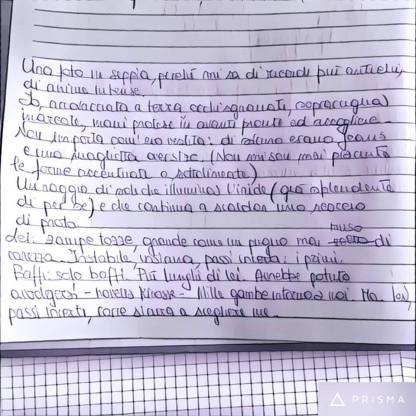 Una foto in seppia, perché mi sa di ricordi più antichi,
di anime intense.
Io, accovacciata a terra occhi sgranati, sopracciglia
inarcate, mani protese in avanti pronte ad accogliere.
Non importa com'ero vestita: di sicuro erano jeans
e una maglietta aversize. (Non mi sono mai piaciute
le forme accentuate o strettamente)
Un raggio di sole che illumina l'iride (già splendente
di per sé) e che continua a scaldar uno scorcio
di prato
Lei: zampe tozze, grande come un pugno mai muso di
carezza. Instabile, indiana, passi incerti: i primi.
Baffi: solo baffi. Più lunghi di lei. Avrebbe potuto
avvolgersi - novella Mille gambe intorno a noi. Ma lei,
passi incerti, corre sicura a scegliere me.
PRISMA